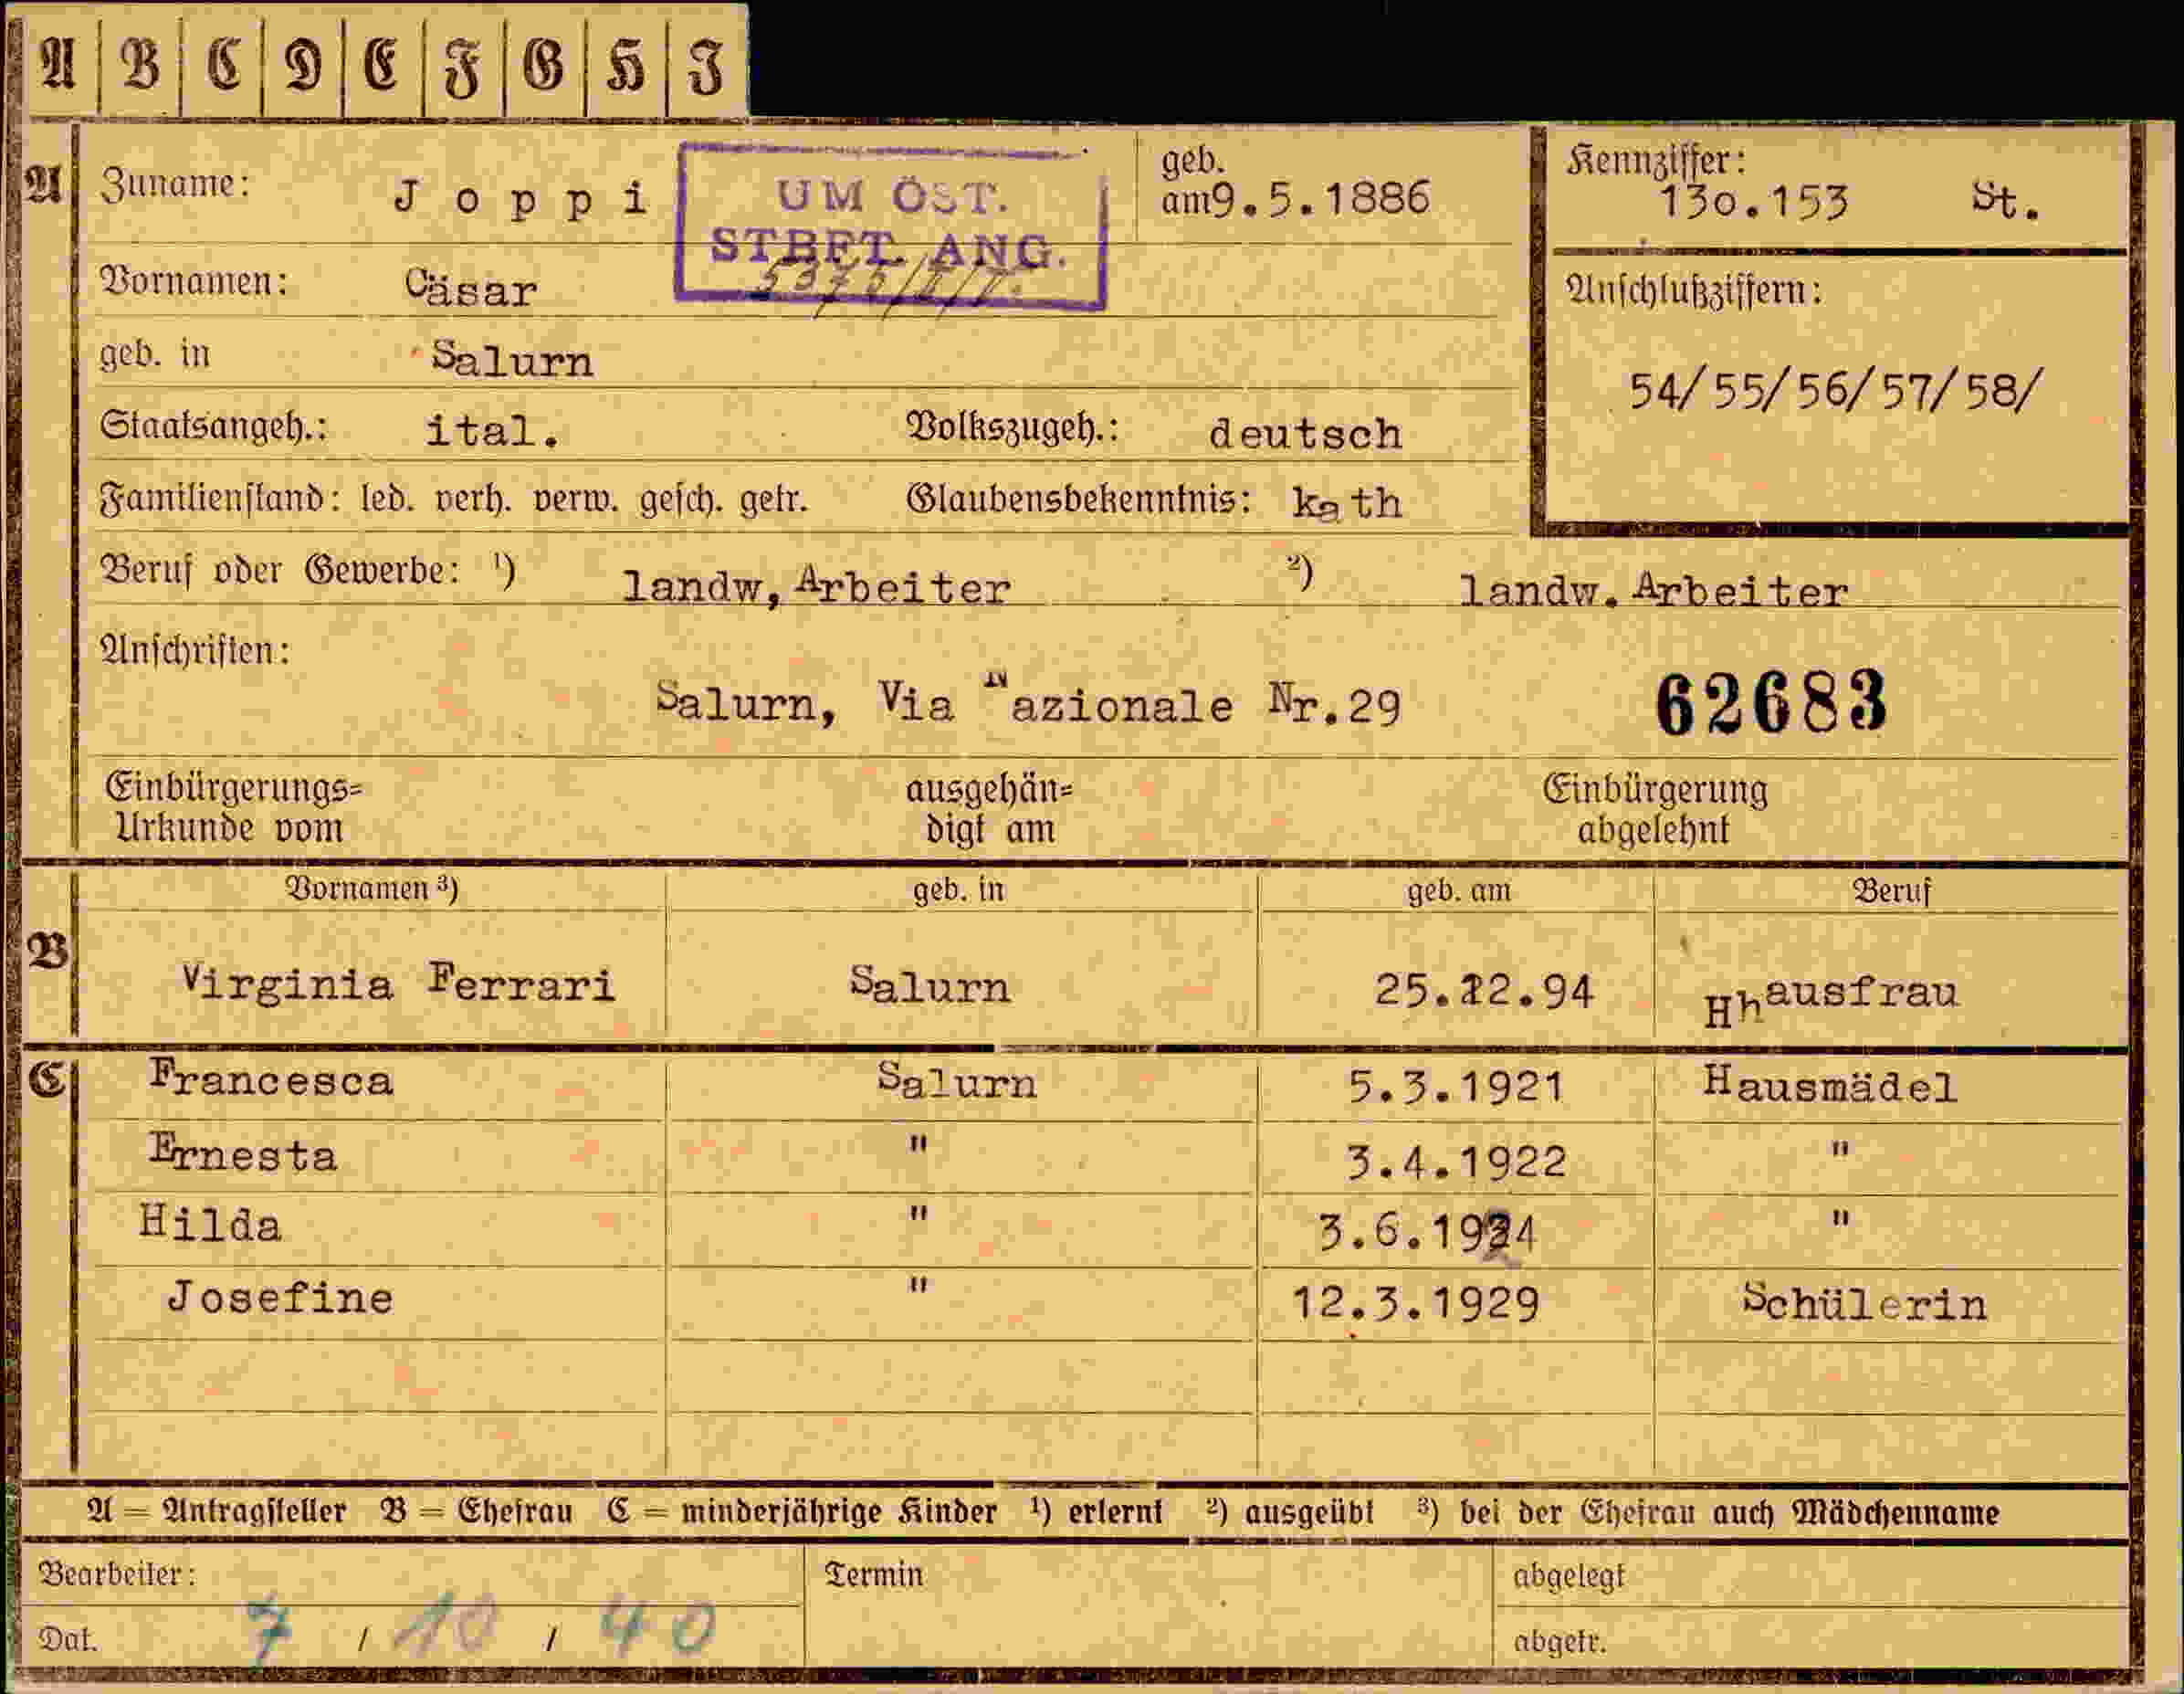 A B C D E F G H I
A Zuname: Joppi geb. am 9.5.1886 Kennziffer: 13o.153 St.
UM ÖST.
STBFT. ANG.
Vornamen: Cäsar Anschlußziffern:
geb. in Salurn
54/55/56/57/58/
Staatsangeh.: ital. Volkszugeh.: deutsch
Familienstand: led. verh. verw. gesch. getr. Glaubensbekenntnis: kath
Beruf oder Gewerbe: ¹) landw, Arbeiter ²) landw. Arbeiter
Anschriften:
Salurn, Via Nazionale Nr.29 62683
Einbürgerungs= ausgehän= Einbürgerung
Urkunde vom digt am abgelehnt
Vornamen ³) geb. in geb. am Beruf
B Virginia Ferrari Salurn 25.12.94 Hhausfrau
C Francesca Salurn 5.3.1921 Hausmädel
Ernesta " 3.4.1922 "
Hilda " 3.6.1924 "
Josefine " 12.3.1929 Schülerin
A = Antragsteller B = Ehefrau C = minderjährige Kinder ¹) erlernt ²) ausgeübt ³) bei der Ehefrau auch Mädchenname
Bearbeiter: Termin abgelegt
Dat. 7 / 10 / 40 abgetr.